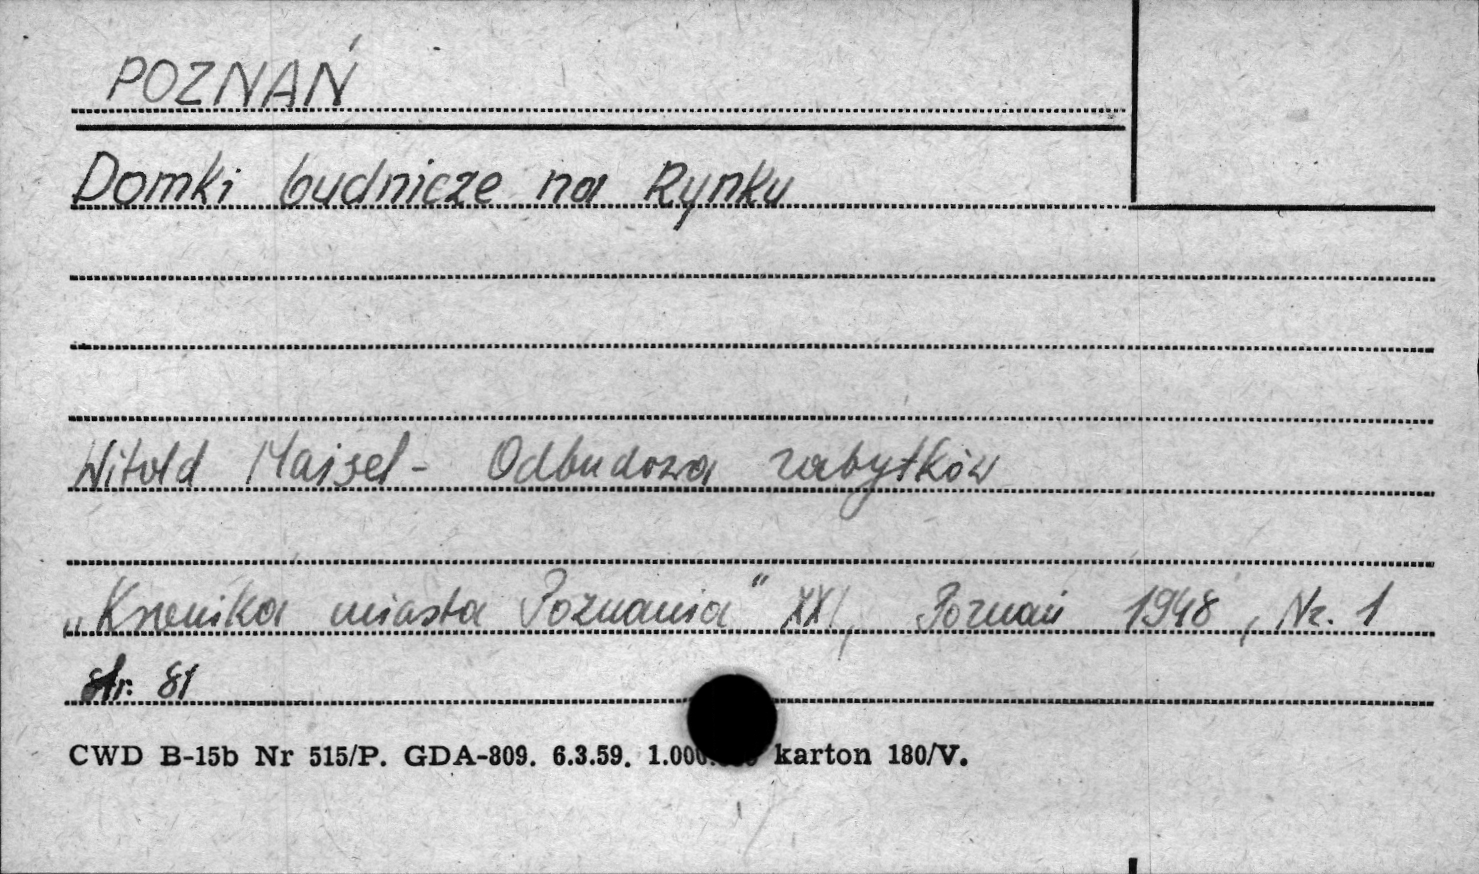 POZNAŃ
Domki budnicze na Rynku
Witold Maisel - Odbudowa zabytków
„Kronika miasta Poznania" XXI, Poznań 1948, Nr. 1
str. 81
CWD B-15b Nr 515/P. GDA-809. 6.3.59. 1.000 karton 180/V.